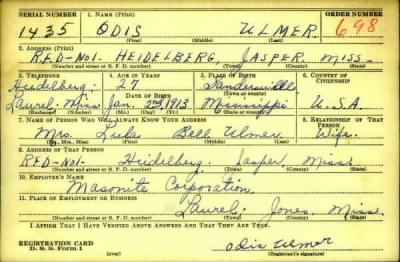 SERIAL NUMBER 1. NAME (Print) ORDER NUMBER
1435 ODIS ULMER 698
(First) (Middle) (Last)
2. ADDRESS (Print)
R.F.D-NO1- HEIDELBERG, JASPER, MISS.
(Number and street or R. F. D. number) (Town) (County) (State)
3. TELEPHONE 4. AGE IN YEARS 5. PLACE OF BIRTH 6. COUNTRY OF CITIZENSHIP
Heidelberg- 27 Sandersville
DATE OF BIRTH (Town or county)
Laurel-Miss Jan. 2nd 1913 Mississippi U.S.A.
(Exchange) (Number) (Mo.) (Day) (Yr.) (State or country)
7. NAME OF PERSON WHO WILL ALWAYS KNOW YOUR ADDRESS 8. RELATIONSHIP OF THAT PERSON
Mrs. Lula Bell Ulmer Wife.
(Mr., Mrs., Miss) (First) (Middle) (Last)
9. ADDRESS OF THAT PERSON
RFD-No1- Heidelberg. Jasper, Miss.
(Number and street or R. F. D. number) (Town) (County) (State)
10. EMPLOYER'S NAME
Masonite Corporation
11. PLACE OF EMPLOYMENT OR BUSINESS
Laurel- Jones, Miss.
(Number and street or R. F. D. number) (Town) (County) (State)
I AFFIRM THAT I HAVE VERIFIED ABOVE ANSWERS AND THAT THEY ARE TRUE.
REGISTRATION CARD
D. S. S. Form 1
Odis Ulmer
(Registrant's signature)